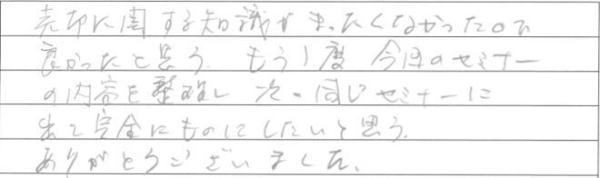 売却に関する知識がまったくなかったので
良かったと思う。もう1度 今回のセミナー
の内容を整理し 次の同じセミナーに
出て完全にものにしたいと思う。
ありがとうございました。